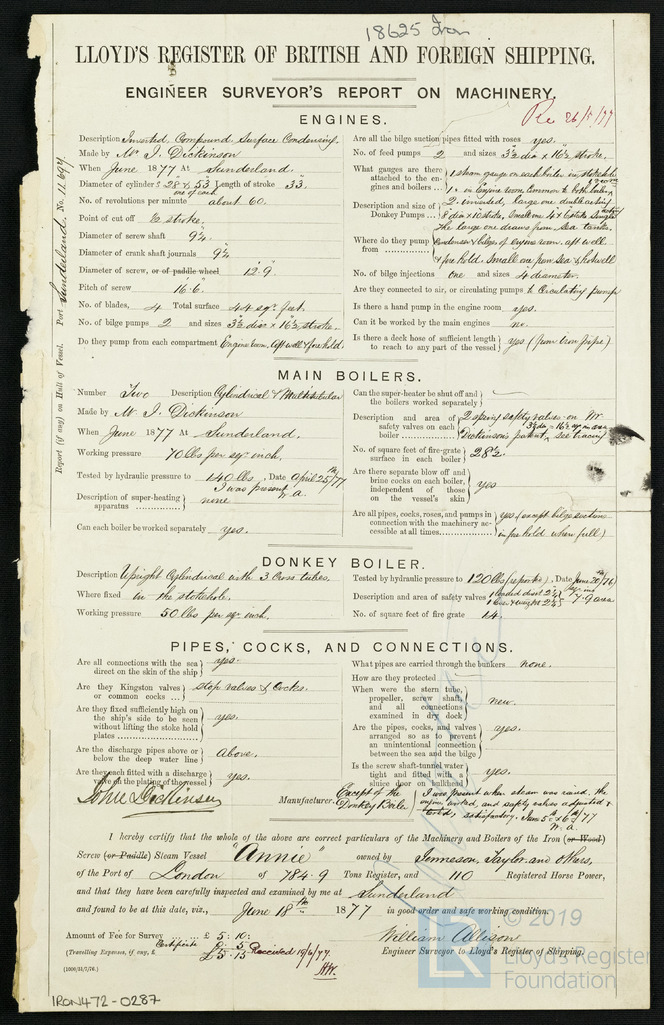 18625 Iron
LLOYD'S REGISTER OF BRITISH AND FOREIGN SHIPPING.
ENGINEER SURVEYOR'S REPORT ON MACHINERY.
Rec 26/5/77
Port Sunderland. No. 11.697
Report (if any) on Hull of Vessel.
ENGINES.
Description Inverted, Compound, Surface Condensing.
Made by Mr J. Dickinson
When June 1877 At Sunderland.
Diameter of cylinders 28" & 53" Length of stroke 33".
one of each
No. of revolutions per minute about 60.
Point of cut off stroke.
Diameter of screw shaft 9½"
Diameter of crank shaft journals 9½"
Diameter of screw, or of paddle wheel 12.9"
Pitch of screw 16'.6"
No. of blades, 4 Total surface 44 sqr. feet.
No. of bilge pumps 2 and sizes 3½ dia x 16½ stroke.
Do they pump from each compartment Engine room, aft well & fore hold.
Are all the bilge suction pipes fitted with roses yes.
No. of feed pumps 2 and sizes 3½ dia x 16½ stroke.
What gauges are there attached to the engines and boilers ... 1 steam gauge on each boiler in stokehole
in Engine room common to both boilers
Description and size of Donkey Pumps ... 2 inverted, large one double acting
8 dia x 10 stroke, Small one 4 x 6 stroke Single
Where do they pump from The large one draws from sea tanks.
Condenser & bilges of engine room, aft well
& fore hold. Small one from sea & hotwell
No. of bilge injections one and sizes 4" diameter.
Are they connected to air, or circulating pumps to Circulating pump
Is there a hand pump in the engine room yes.
Can it be worked by the main engines no.
Is there a deck hose of sufficient length to reach to any part of the vessel yes (from iron pipe)
MAIN BOILERS.
Number Two Description Cylindrical & Multitubular
Made by Mr J. Dickinson
When June 1877 At Sunderland.
Working pressure 70 lbs per sqr inch.
Tested by hydraulic pressure to 140 lbs, Date April 25th /77
I was present W.A.
Description of super-heating apparatus none
Can each boiler be worked separately yes.
Can the super-heater be shut off and the boilers worked separately
Description and area of safety valves on each boiler 2 spring safety valves on Mr
3¼ dia = 16½ sq in area
Dickinson's patent, see tracing
No. of square feet of fire-grate surface in each boiler 28½.
Are there separate blow off and brine cocks on each boiler, independent of those on the vessel's skin yes
Are all pipes, cocks, roses, and pumps in connection with the machinery accessible at all times yes (except bilge suctions
in fore hold when full)
DONKEY BOILER.
Description Upright Cylindrical with 3 Cross tubes.
Where fixed in the stokehole.
Working pressure 50 lbs per sqr inch.
Tested by hydraulic pressure to 120 lbs (reported), Date June 20th /76
Description and area of safety valves 1 loaded direct 2¼
1 lever & weight 2¼ 7.9 area
No. of square feet of fire grate 14.
PIPES, COCKS, AND CONNECTIONS.
Are all connections with the sea direct on the skin of the ship yes.
Are they Kingston valves or common cocks ... stop valves & Cocks.
Are they fixed sufficiently high on the ship's side to be seen without lifting the stoke hold plates yes.
Are the discharge pipes above or below the deep water line above.
Are they each fitted with a discharge valve on the plating of the vessel yes.
What pipes are carried through the bunkers none.
How are they protected
When were the stern tube, propeller, screw shaft, and all connections examined in dry dock new.
Are the pipes, cocks, and valves arranged so as to prevent an unintentional connection between the sea and the bilge yes.
Is the screw shaft-tunnel water tight and fitted with a sluice door on bulkhead yes.
John Dickinson Manufacturer. Except of the
Donkey Boiler
I was present when steam was raised, the
engines worked, and safety valves adjusted &
tested, satisfactory. June 5th & 6th /77
W.A.
I hereby certify that the whole of the above are correct particulars of the Machinery and Boilers of the Iron (or Wood)
Screw (or Paddle) Steam Vessel "Annie" owned by Jomneson, Taylor and others,
of the Port of London of 784.9 Tons Register, and 110 Registered Horse Power,
and that they have been carefully inspected and examined by me at Sunderland
and found to be at this date, viz., June 18th 1877 in good order and safe working condition.
Amount of Fee for Survey ... £ 5 : 10 :
Certificate 0. 5
(Travelling Expenses, if any, £ £5.15 Received 19/6/77.
HW.
William Allison
Engineer Surveyor to Lloyd's Register of Shipping.
(1000/31/7/76.)
IRON472-0287
© 2019
LR
Lloyd's Register
Foundation